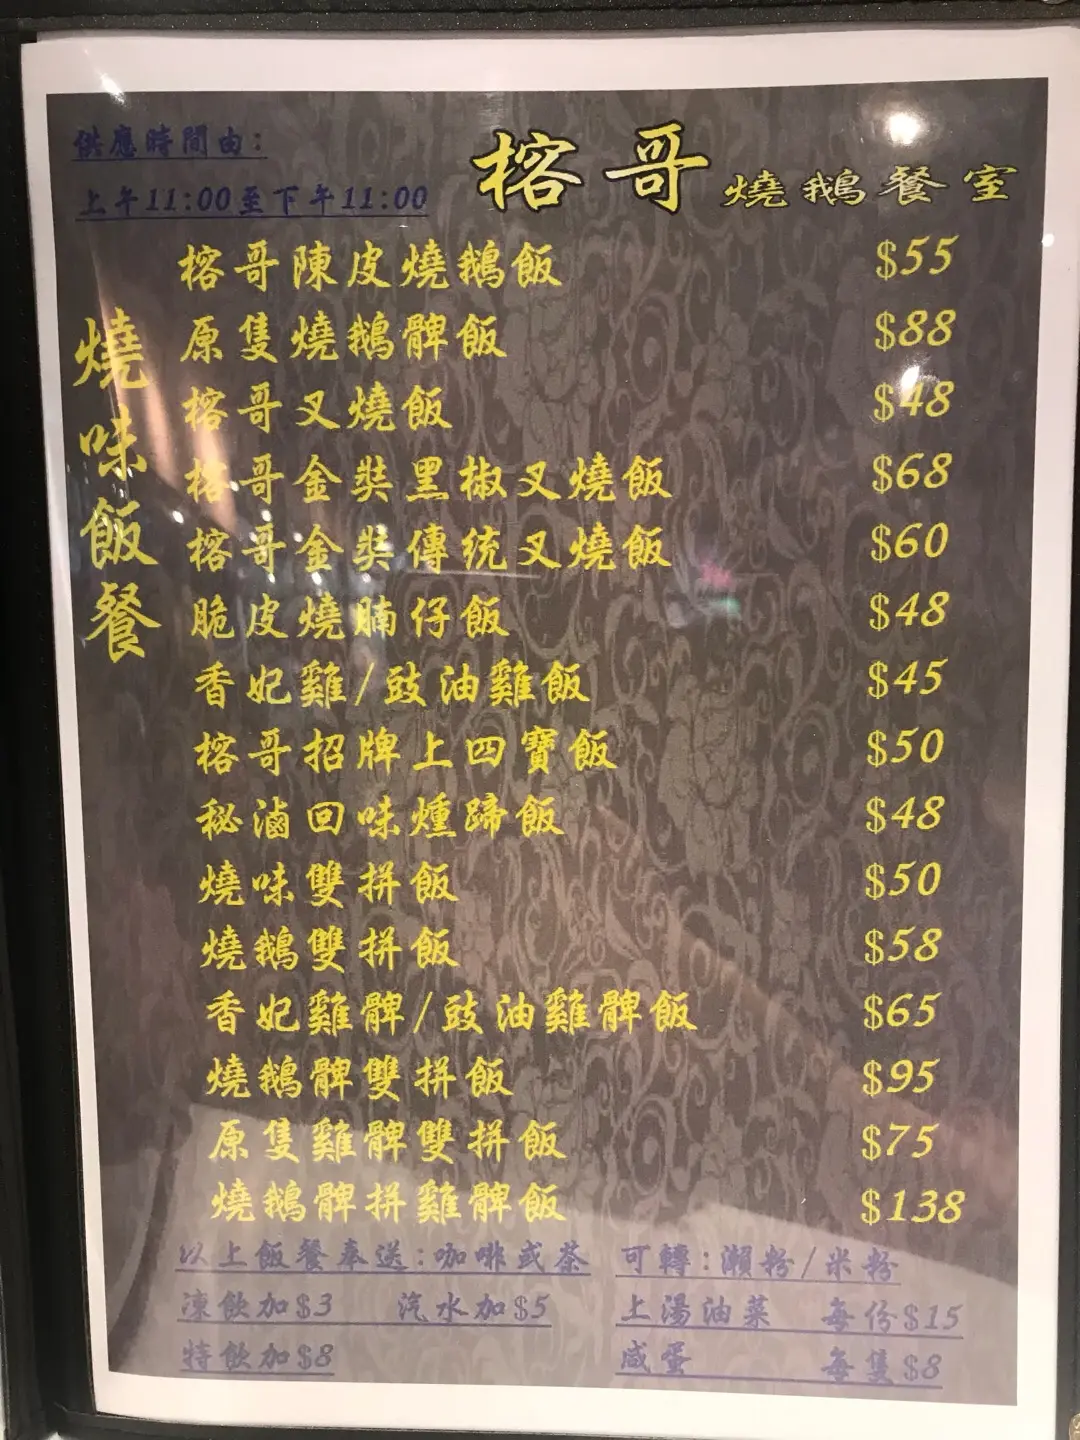 供應時間由:
上午11:00至下午11:00
榕哥 燒鵝餐室
燒味飯餐
榕哥陳皮燒鵝飯 $55
原隻燒鵝髀飯 $88
榕哥叉燒飯 $48
榕哥金裝黑椒叉燒飯 $68
榕哥金獎傳统叉燒飯 $60
脆皮燒腩仔飯 $48
香妃雞/豉油雞飯 $45
榕哥招牌上四寶飯 $50
秘滷回味燻蹄飯 $48
燒味雙拼飯 $50
燒鵝雙拼飯 $58
香妃雞髀/豉油雞髀飯 $65
燒鵝髀雙拼飯 $95
原隻雞髀雙拼飯 $75
燒鵝髀拼雞髀飯 $138
以上飯餐奉送:咖啡或茶 可轉:瀨粉/米粉
凍飲加$3 汽水加$5 上湯油菜 每份$15
特飲加$8 咸蛋 每隻$8